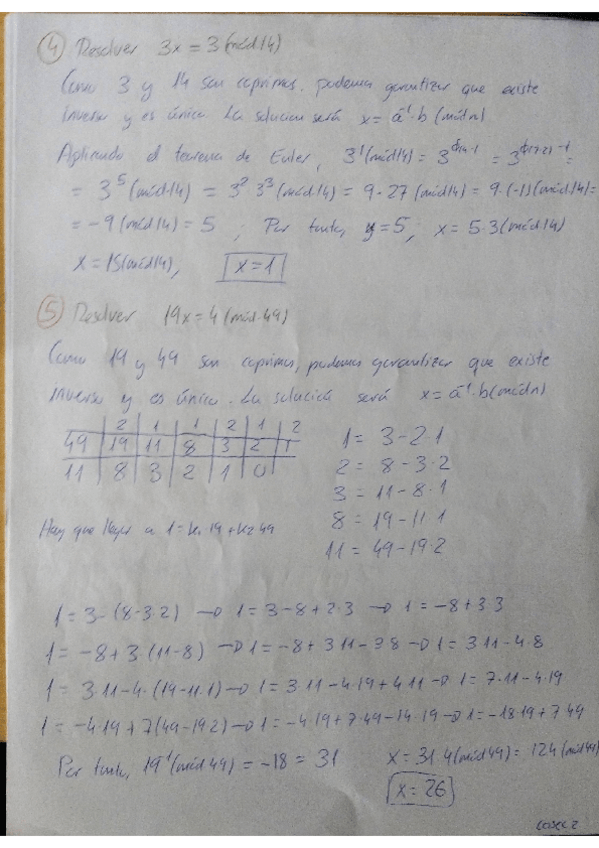 ④ Resolver 3x = 3 (mód 14)
Como 3 y 14 son coprimos, podemos garantizar que existe
inverso y es único. La solución será x = a⁻¹·b (mód n)
Aplicando el teorema de Euler, 3⁻¹ (mód 14) =
= 3⁵ (mód 14) = 3² 3³ (mód 14) = 9·27 (mód 14) = 9·(-1)(mód 14) =
= -9 (mód 14) = 5 ; Por tanto, y=5, x = 5·3 (mód 14)
x = 15 (mód 14), x=1
⑤ Resolver 19x = 4 (mód 49)
Como 19 y 49 son coprimos, podemos garantizar que existe
inverso y es único. La solución será x = a⁻¹·b (mód n)
2 1 1 2 1 2
49 19 11 8 3 2 1
11 8 3 2 1 0
1 = 3-2·1
2 = 8-3·2
3 = 11-8·1
8 = 19-11·1
11 = 49-19·2
Hay que llegar a 1 = k₁·19 + k₂·49
1 = 3-(8-3·2) → 1 = 3-8+2·3 → 1 = -8+3·3
1 = -8+3·(11-8) → 1 = -8+3·11-3·8 → 1 = 3·11-4·8
1 = 3·11-4·(19-11·1) → 1 = 3·11-4·19+4·11 → 1 = 7·11-4·19
1 = -4·19+7(49-19·2) → 1 = -4·19+7·49-14·19 → 1 = -18·19+7·49
Por tanto, 19⁻¹ (mód 49) = -18 = 31 x = 31·4 (mód 49) = 124 (mód 49)
x = 26